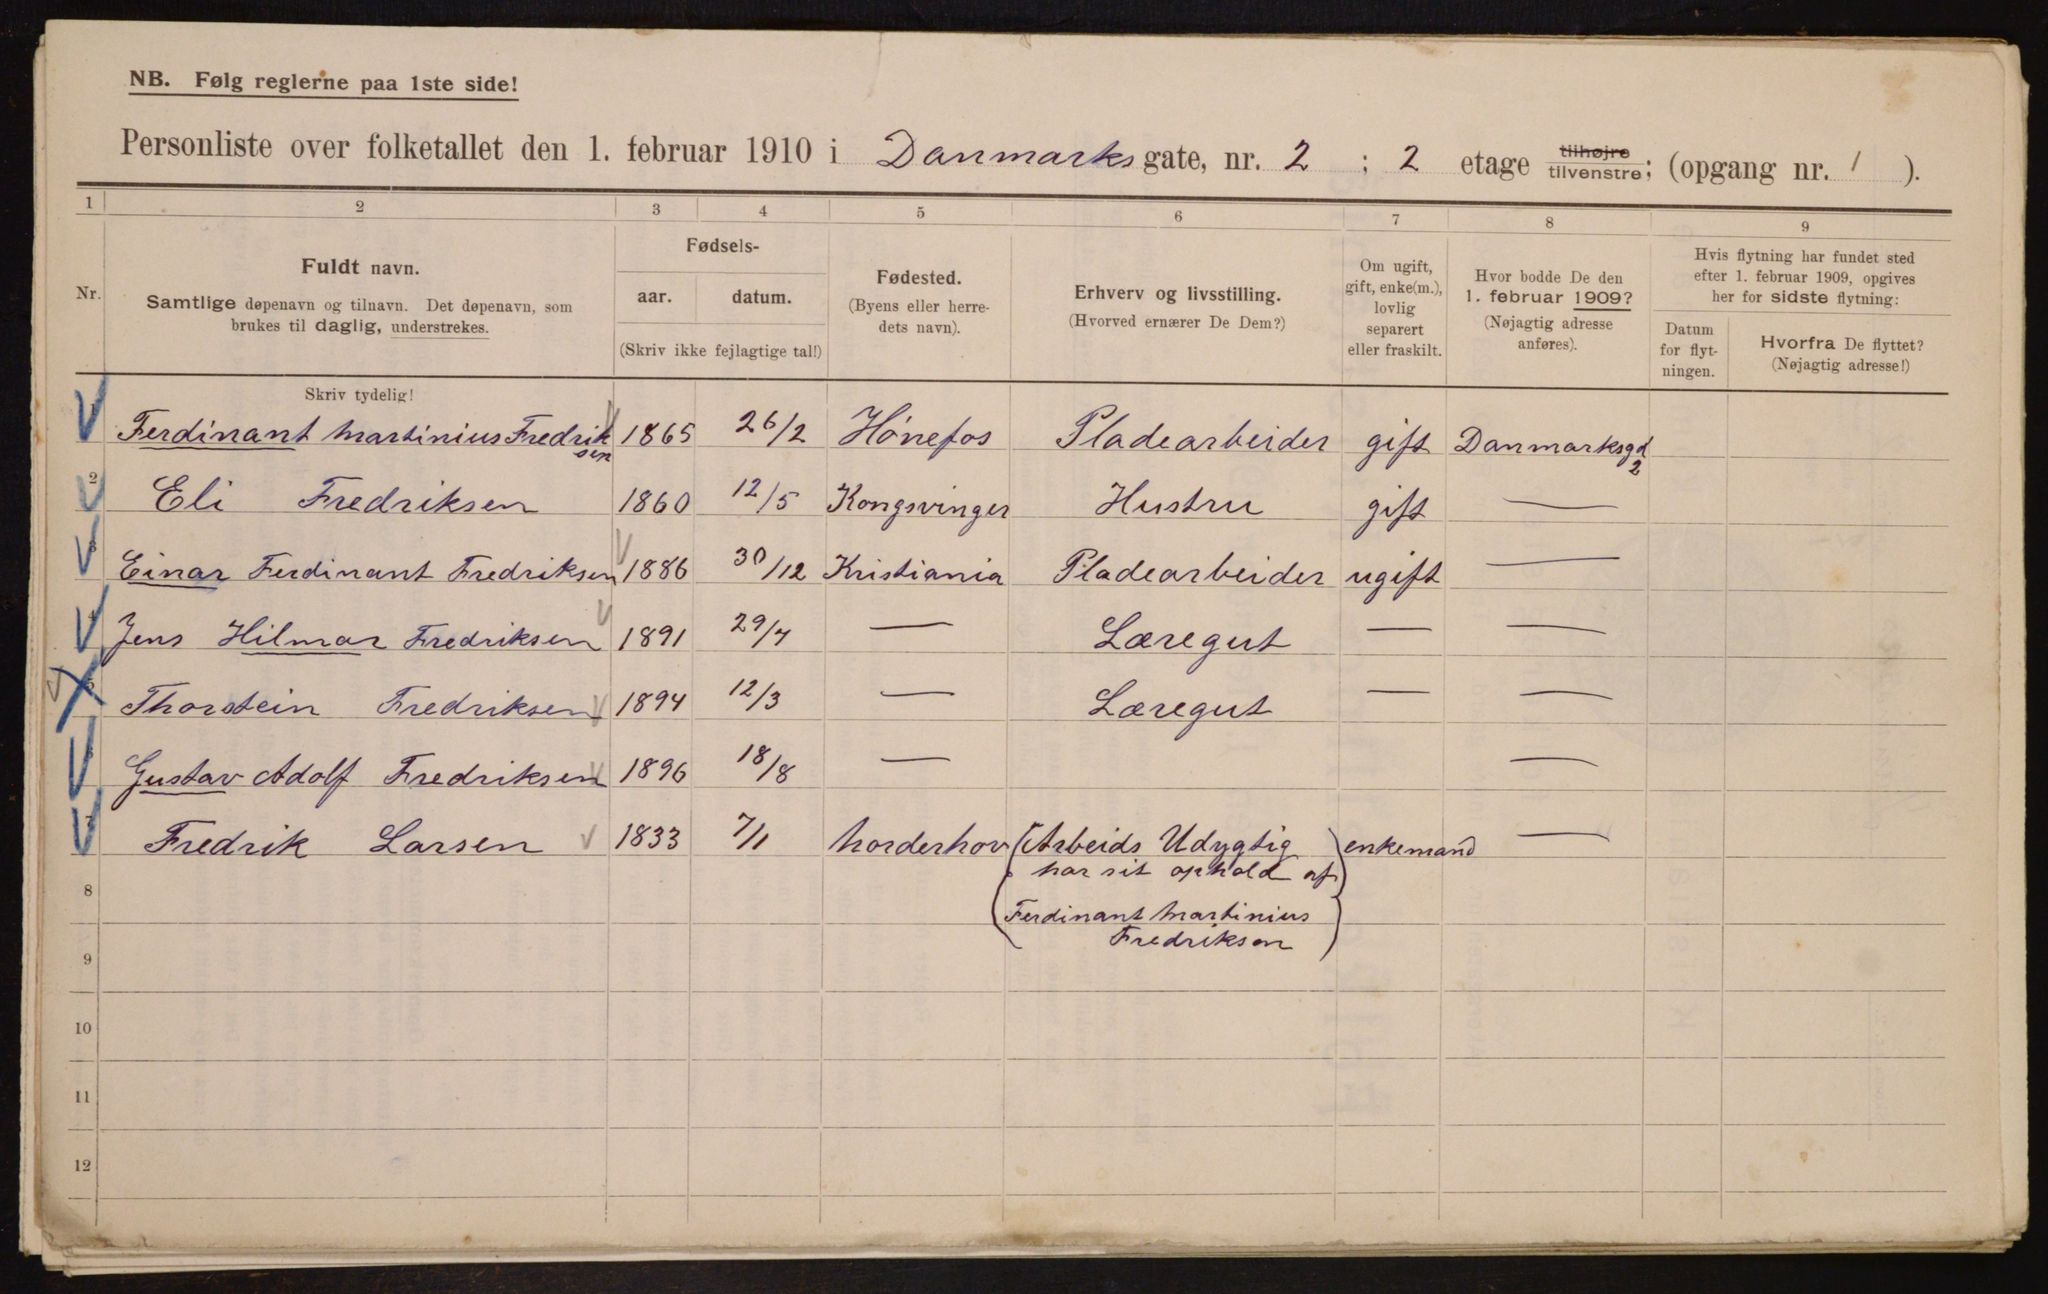 NB. Følg reglerne paa 1ste side!
Personliste over folketallet den 1. februar 1910 i Danmarks gate, nr. 2 ; 2 etage tilhøjre tilvenstre; (opgang nr. 1 ).
1 2 3 4 5 6 7 8 9
Nr.
Fuldt navn.
Samtlige døpenavn og tilnavn. Det døpenavn, som
brukes til daglig, understrekes.
Skriv tydelig!
Fødsels-
aar. datum.
(Skriv ikke fejlagtige tal!)
Fødested.
(Byens eller herre-
dets navn).
Erhverv og livsstilling.
(Hvorved ernærer De Dem?)
Om ugift,
gift, enke(m.),
lovlig
separert
eller fraskilt.
Hvor bodde De den
1. februar 1909?
(Nøjagtig adresse
anføres).
Hvis flytning har fundet sted
efter 1. februar 1909, opgives
her for sidste flytning:
Datum
for flyt-
ningen.
Hvorfra De flyttet?
(Nøjagtig adresse!)
1 Ferdinant Martinius Fredrik 1865 26/2 Hønefos Pladearbeider gift Danmarksgd
sen 2
2 Eli Fredriksen 1860 12/5 Kongsvinger Hustru gift —
3 Einar Ferdinant Fredriksen 1886 30/12 Kristiania Pladearbeider ugift —
4 Jens Hilmar Fredriksen 1891 29/7 — Læregut — —
5 Thorstein Fredriksen 1894 12/3 — Læregut — —
6 Gustav Adolf Fredriksen 1896 18/8 — —
7 Fredrik Larsen 1833 7/1 Norderhov (Arbeids Udygtig enkemand —
har sit ophold af
8 Ferdinant Martinius
Fredriksen)
9
10
11
12